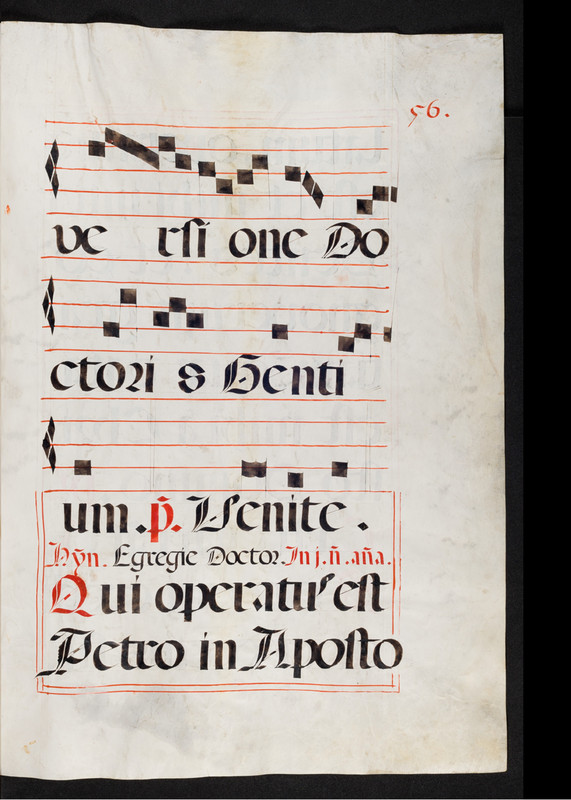 56.
ve rſi one Do
ctori s Genti
um. p̃. Venite.
Hỹn. Egregie Doctor. In j. ñ. aña.
Qui operatuſ eſt
Petro in Apoſto